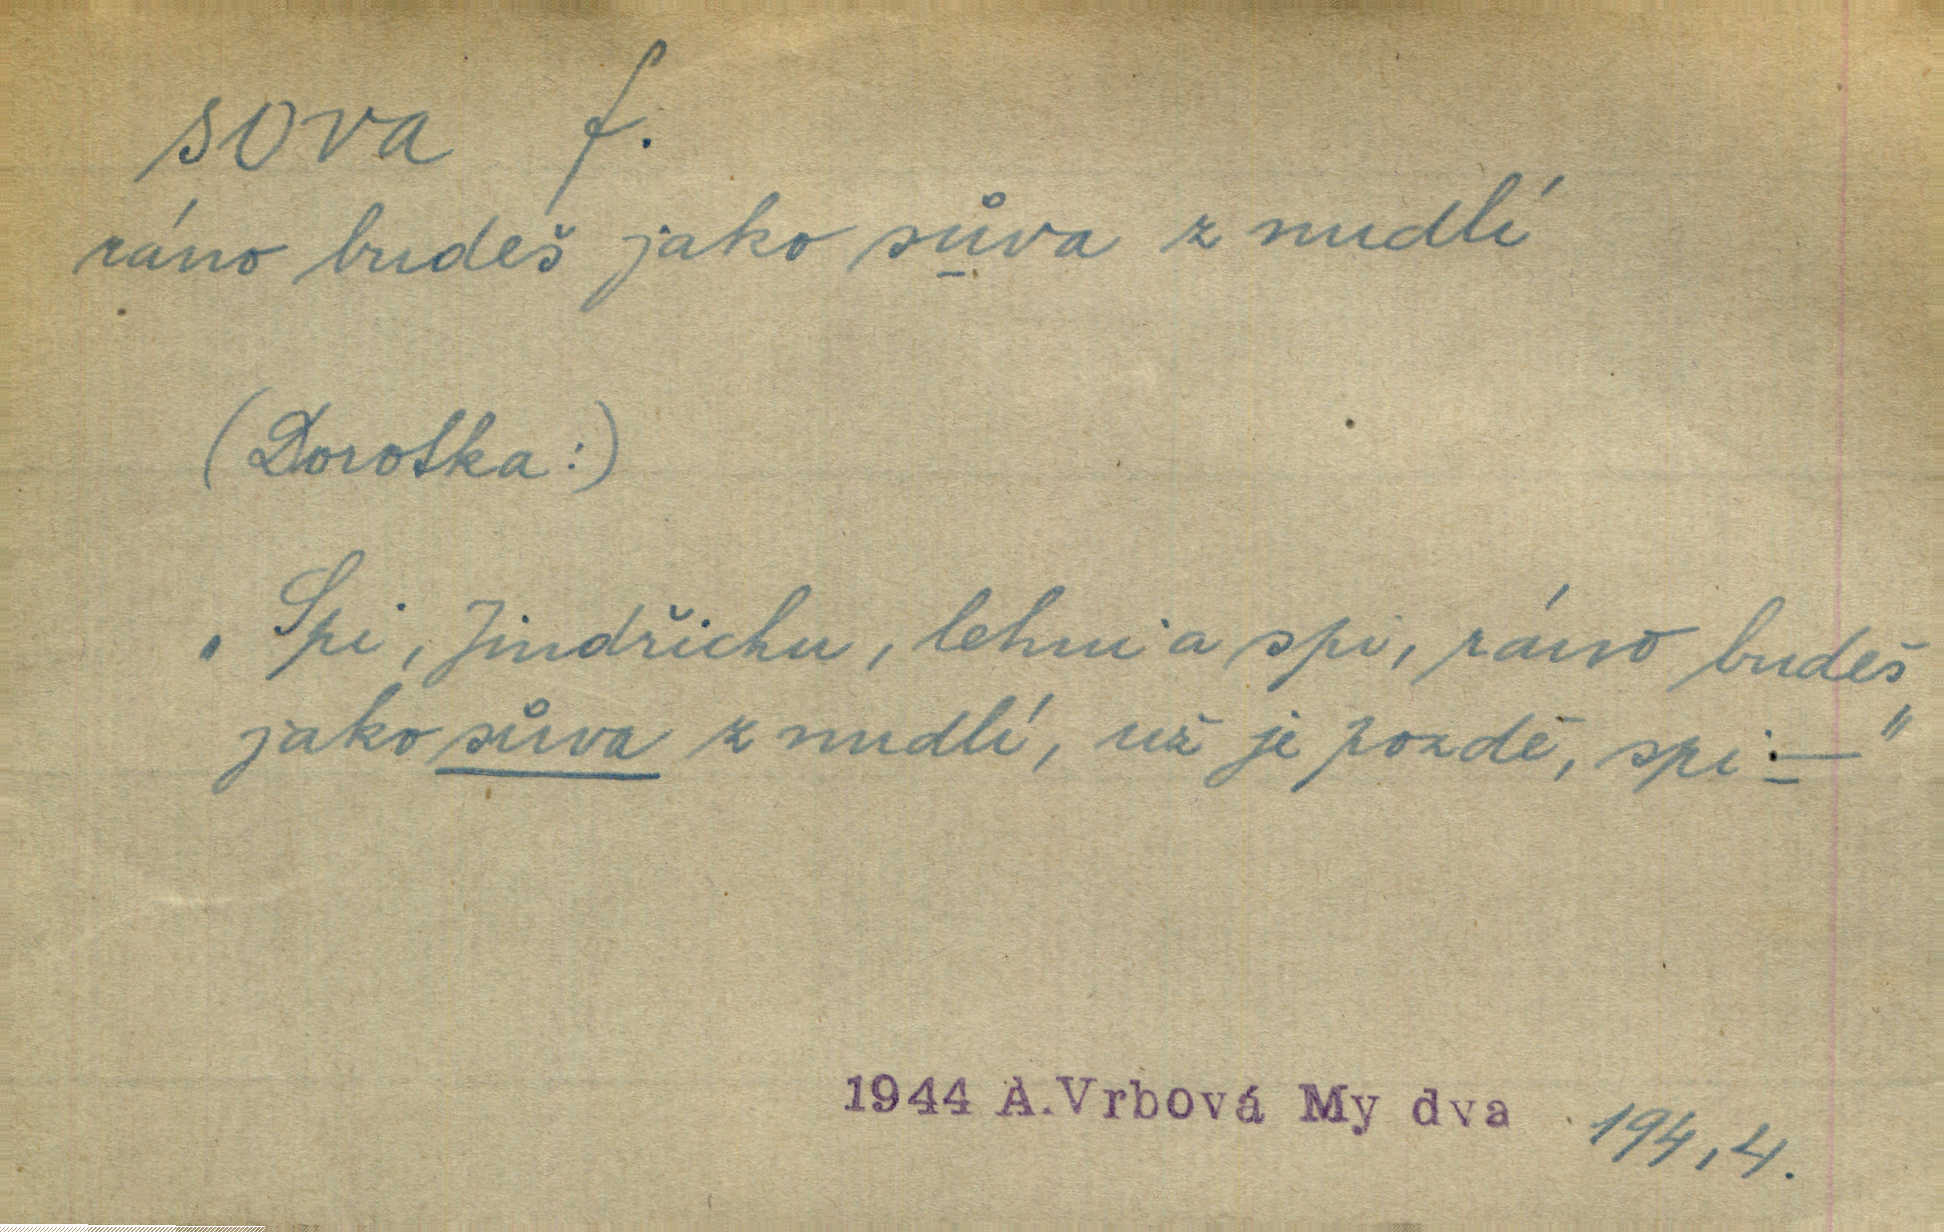 sova f.
ráno budeš jako sůva z nudlí
(Dorotka:)
„Spi, Jindřichu, lehni a spi, ráno budeš
jako sůva z nudlí, už je pozdě, spi.—"
1944 A.Vrbová My dva 194,4.